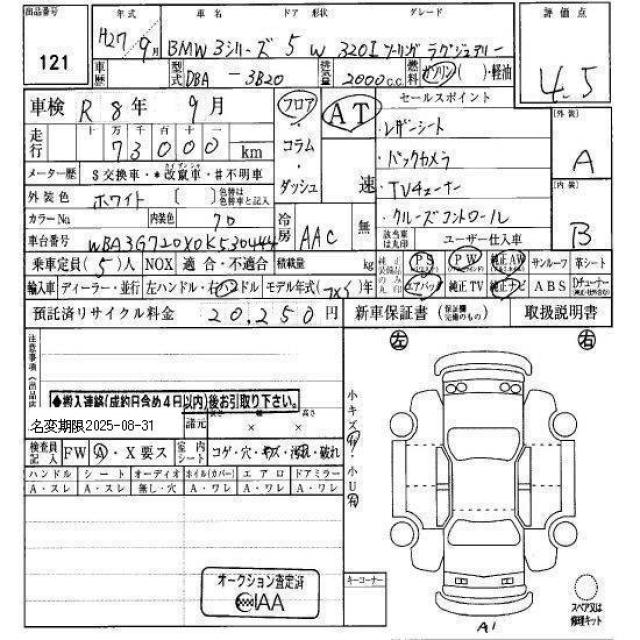 出品番号 年式 車名 ドア 形状 グレード 評価点
121 H27 9月 BMW 3シリーズ 5 W 320I ツーリング ラグジュアリー 4.5
車歴 型式 DBA - 3B20 排気量 2000c.c. 燃料 ガソリン ( )・軽油
車検 R 8年 9月 フロア AT セールスポイント 外装
走行 十 万 千 百 十 一
73000 km コラム ・レザーシート A
メーター歴 $交換車・*改竄車・#不明車 ダッシュ 速 ・バックカメラ 内装
外装色 ホワイト [ ] 色替は色替車と記入 ・TVチューナー
カラーNo 内装色 70 冷房 AAC 無 ・クルーズコントロール B
車台番号 WBA3G720X0K530444 該当車は丸印 ユーザー仕入車
乗車定員(5)人 NOX 適合・不適合 積載量 kg 純正装備品のみ丸印 PS PW 純正AW サンルーフ 革シート
輸入車 ディーラー・並行 左ハンドル・右ハンドル モデル年式( )年 エアバック 純正TV 純正ナビ ABS Dチューナー
預託済リサイクル料金 20,250円 新車保証書(保証欄完備のもの) 取扱説明書
注意事項(出品店) 左 右
◆搬入連絡(成約日含め4日以内)後お引取り下さい。
名変期限2025-08-31 諸元 長さ × 幅 × 高さ
小キズ有 小U有
検査員記入 FW A・X要ス 室内シート コゲ・穴・キズ・汚れ・破れ
ハンドル シート オーディオ ホイル(カバー) エアロ ドアミラー
A・スレ A・スレ 無し・穴 A・ワレ A・ワレ A・ワレ
オークション査定済
JAAA
キーコーナー
A1
スペア又は修理キット